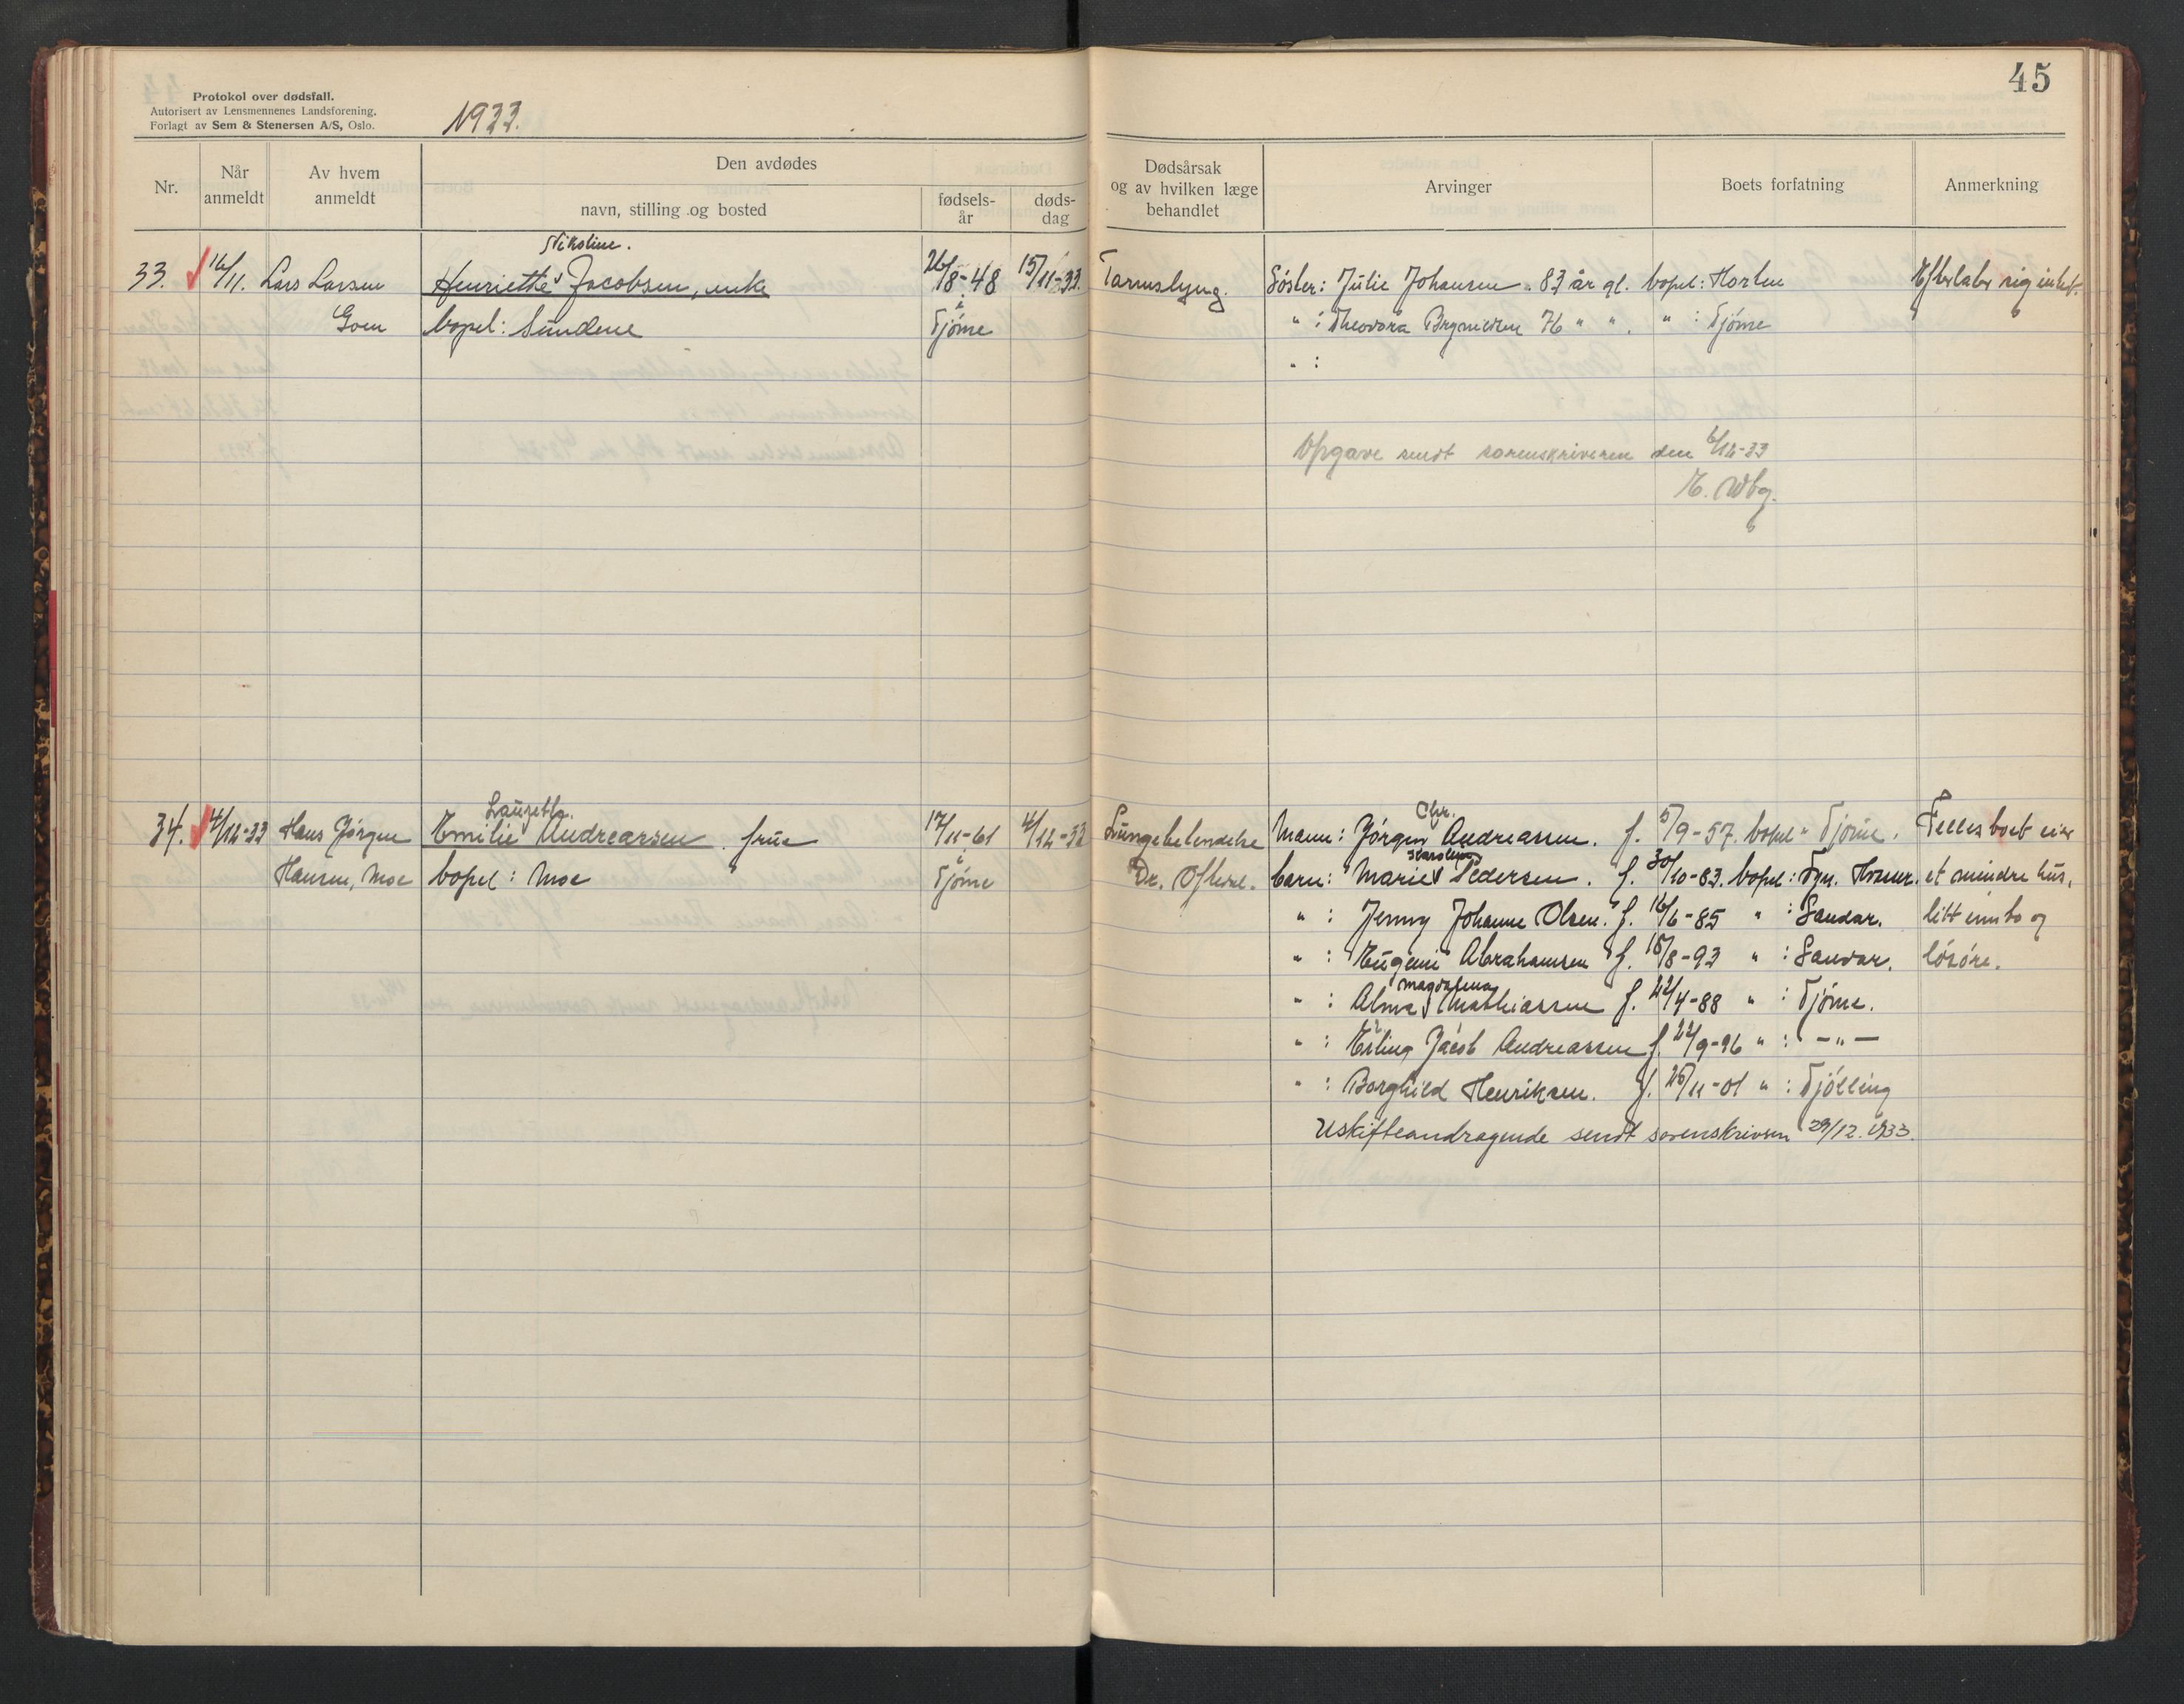 Protokol over dødsfall.
Autorisert av Lensmennenes Landsforening.
Forlagt av Sem & Stenersen A/S, Oslo.
1933.
45
Nr.
Når anmeldt
Av hvem anmeldt
Den avdødes
navn, stilling og bosted
fødsels-år
døds-dag
Dødsårsak og av hvilken læge behandlet
Arvinger
Boets forfatning
Anmerkning
Nikoline.
33. 16/11. Lars Larsen Henriette Jacobsen, enke 26/8-48 15/11-33. Tarmslyng. Søster: Julie Johansen 83 år gl. bopel: Horten Efterlater sig intet.
Goen bopel: Sundene i Tjøme " : Theodora Brynildsen 76 " " . " : Tjøme
" :
Opgave sendt sorenskriveren den 6/12-33
Lauretta.
34. 4/12-33 Hans Jørgen Emilie Andreassen frue 17/11-61 4/12-33 Lungebetendelse Mann: Jørgen Chr. Andreassen. f. 5/9-57. bopel " Tjøme. Felles boet eier
Hansen, Moe bopel: Moe i Tjøme Dr. Oftedal. barn: Marie Karoline Pedersen. f. 30/10-83. bopel: Tjm. Hvasser. et mindre hus,
" : Jenny Johanne Olsen. f. 16/6-85 " : Sandar. litt innbo og
" : Eugenie Abrahamsen f. 18/8-93 " : Sandar. løsøre.
" : Alma Magdalena Mathiassen f. 22/4-88 " : Tjøme.
" : Erling Jacob Andreassen f. 22/9-96 " : -"-
" : Borghild Henriksen. f. 25/11-01 " : Tjølling
Uskifteandragende sendt sorenskriveren 29/12.1933.